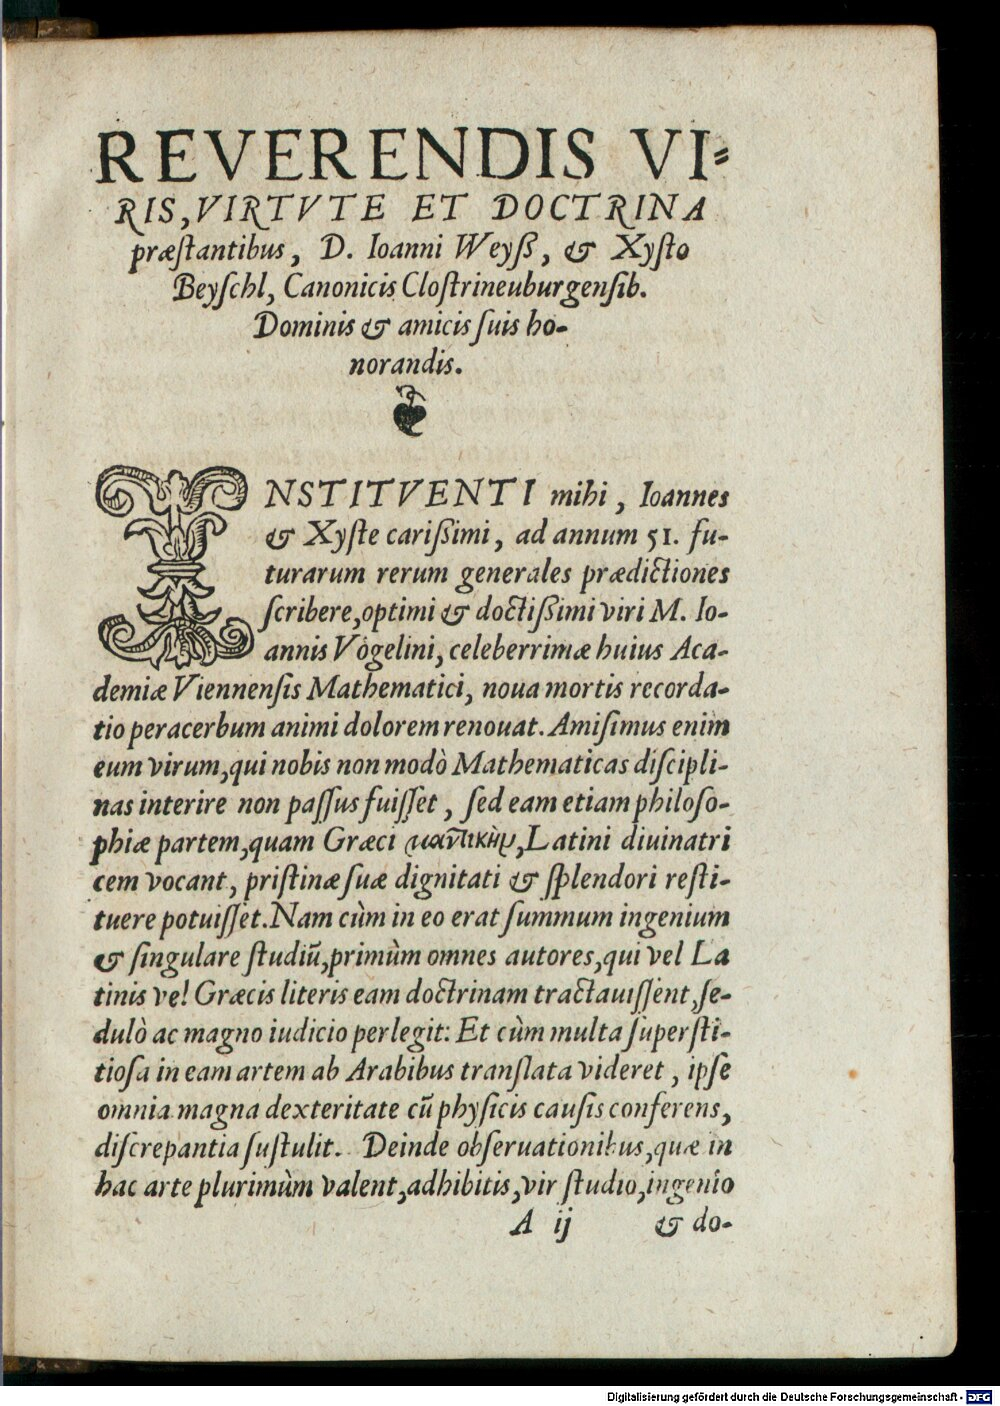 REVERENDIS VI=
RIS, VIRTVTE ET DOCTRINA
præſtantibus, D. Ioanni Weyß, & Xyſto
Beyſchl, Canonicis Cloſtrineuburgenſib.
Dominis & amicis ſuis ho-
norandis.
INSTITVENTI mihi, Ioannes
& Xyſte carißimi, ad annum 51. fu-
turarum rerum generales prædictiones
ſcribere, optimi & doctißimi viri M. Io-
annis Vögelini, celeberrimæ huius Aca-
demiæ Viennenſis Mathematici, noua mortis recorda-
tio peracerbum animi dolorem renouat. Amiſimus enim
eum virum, qui nobis non modò Mathematicas diſcipli-
nas interire non paſſus fuiſſet, ſed eam etiam philoſo-
phiæ partem, quam Græci μαντικὴν, Latini diuinatri
cem vocant, priſtinæ ſuæ dignitati & ſplendori reſti-
tuere potuiſſet. Nam cùm in eo erat ſummum ingenium
& ſingulare ſtudiũ, primùm omnes autores, qui vel La
tinis vel Græcis literis eam doctrinam tractauiſſent, ſe-
dulò ac magno iudicio perlegit: Et cùm multa ſuperſti-
tioſa in eam artem ab Arabibus tranſlata videret, ipſe
omnia magna dexteritate cũ phyſicis cauſis conferens,
diſcrepantia ſuſtulit. Deinde obſeruationibus, quæ in
hac arte plurimùm valent, adhibitis, vir ſtudio, ingenio
A ij & do-
Digitalisierung gefördert durch die Deutsche Forschungsgemeinschaft - DFG